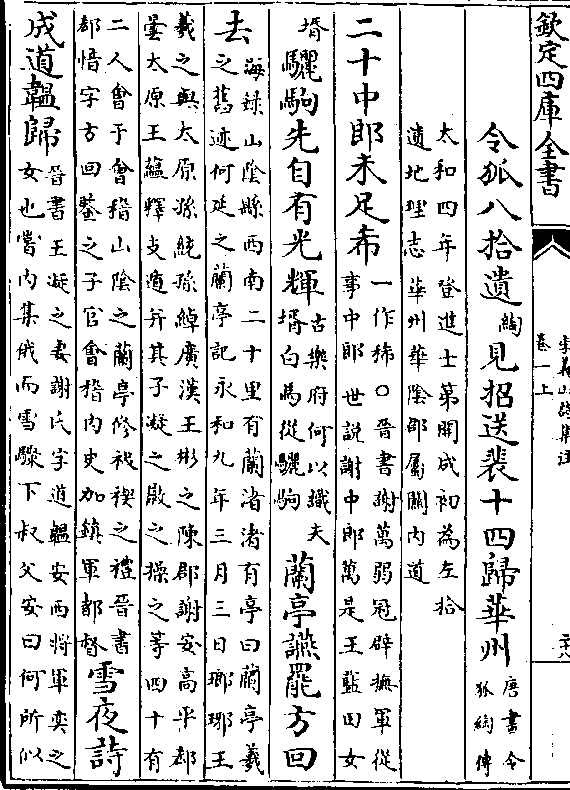 欽定四庫全書
卷一上
令狐八拾遺綯見招送裴十四歸華州唐書令狐綯傳
太和四年登進士第開成初為左拾
遺地理志華州華陰郡屬關内道
二十中郎未足希一作稀○晉書謝萬弱冠辟撫軍從事中郎世説謝中郎萬是王藍田女
壻驪駒先自有光輝古樂府何以識夫壻白馬從驪駒蘭亭讌罷方回
去海録山隂縣西南二十里有蘭渚渚有亭曰蘭亭羲之舊迹何延之蘭亭記永和九年三月三日瑯琊王
羲之與太原孫統孫綽廣漢王彬之陳郡謝安高平郗曇太原王蘊釋支遁并其子凝之徽之操之等四十有
二人會于會稽山陰之蘭亭修祓禊之禮晉書郗愔字方回鑒之子官會稽内史加鎮軍都督雪夜詩
成道韞歸晉書王凝之妻謝氏字道韞安西將軍奕之女也嘗内集俄而雪驟下叔父安曰何所似